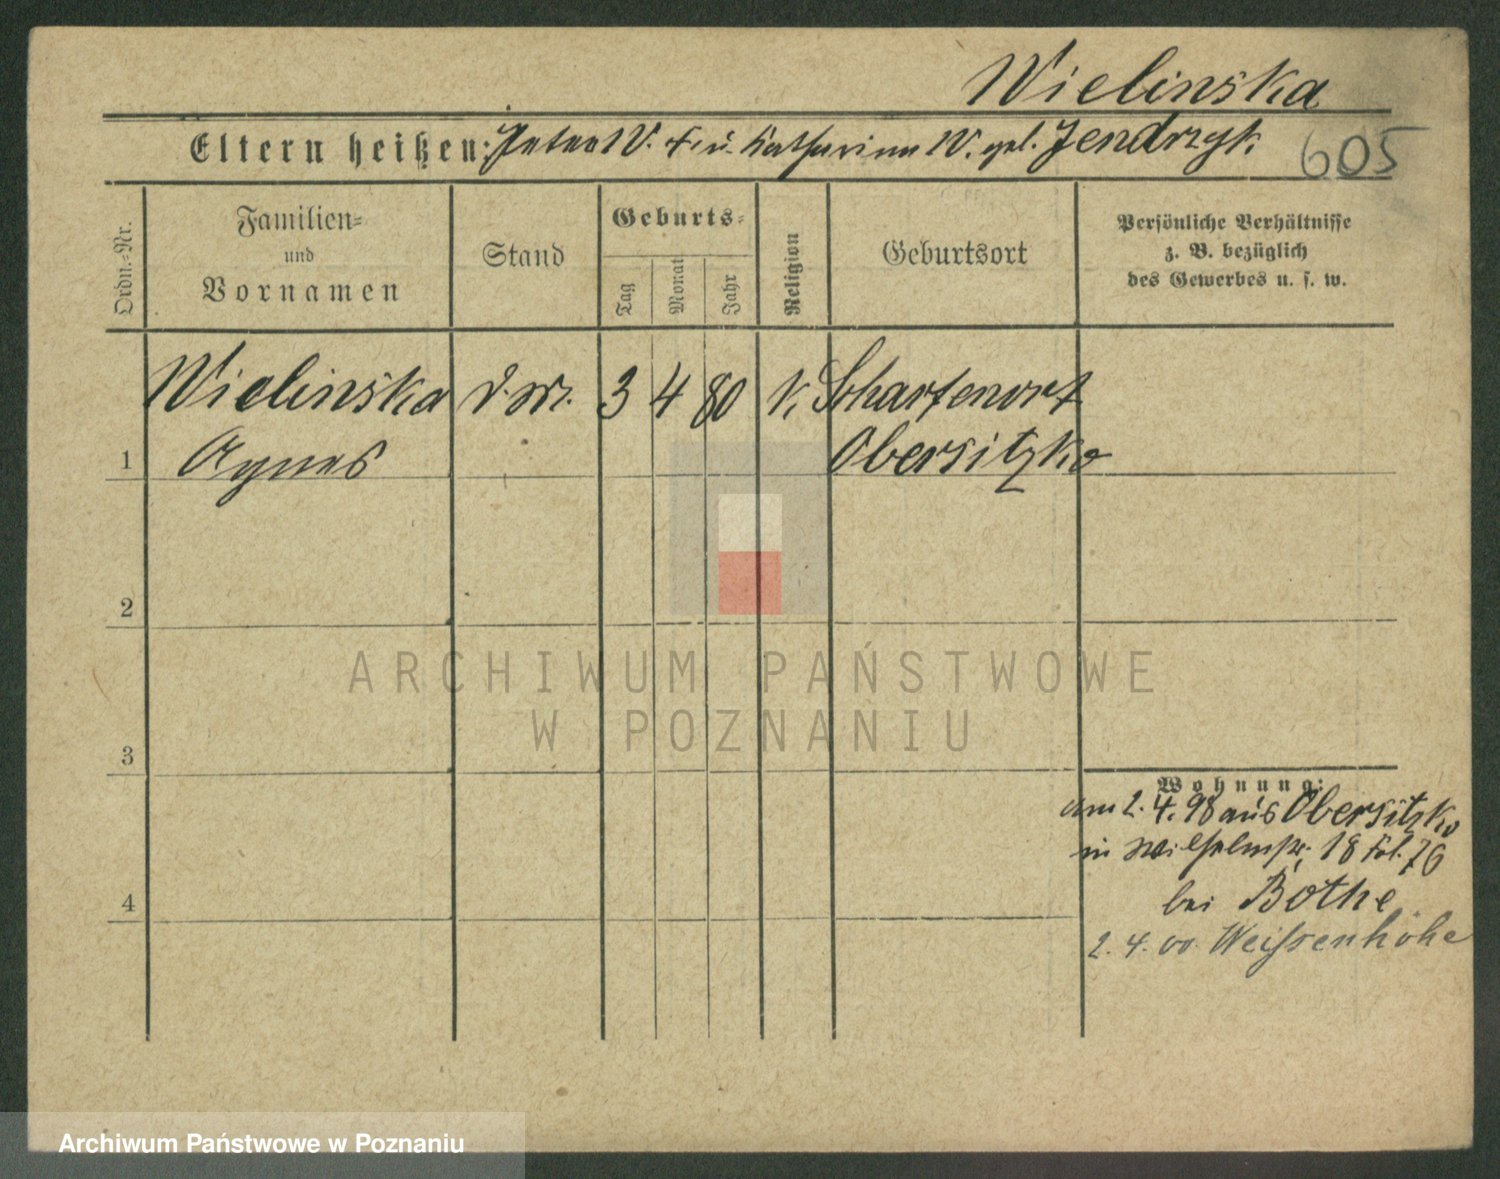 Wielinska
Eltern heißen: Peter W. †. u. Katharina W. geb. Jendrzyk.
605
Ordn.-Nr.
Familien-
und
Vornamen
Stand
Geburts-
Tag
Monat
Jahr
Religion
Geburtsort
Persönliche Verhältnisse
z. B. bezüglich
des Gewerbes u. s. w.
Wielinska
d. M. 3 4 80 k. Scharfenort
1 Agnes Obersitzko
2
ARCHIWUM PAŃSTWOWE
W POZNANIU
3
Wohnung:
am 2. 4. 98 aus Obersitzko
in Wilhelmstr. 18 Fol. 76
bei Bothe
4
2. 4. 00. Weissenhöhe
Archiwum Państwowe w Poznaniu